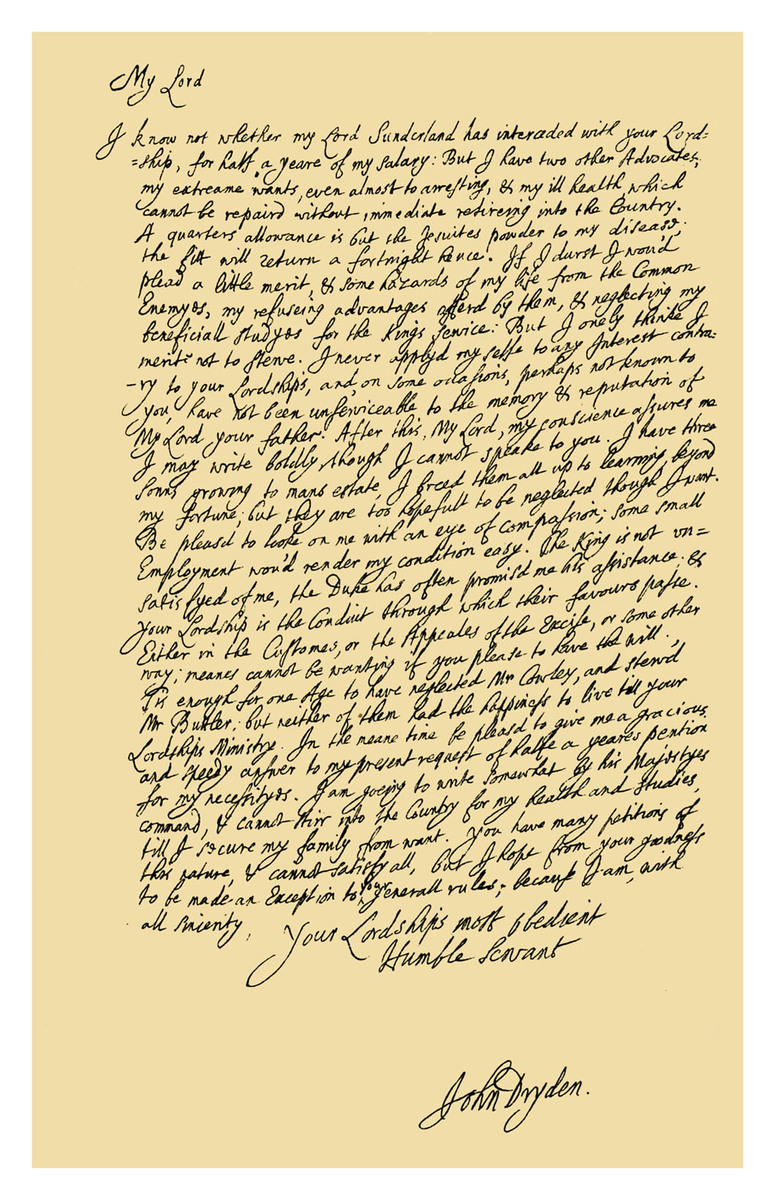 My Lord
I know not whether my Lord Sunderland has interceded with your Lord=
=ship, for half a yeare of my salary: But I have two other Advocates,
my extreame wants, even almost to arresting, & my ill health, which
cannot be repaird without immediate retireing into the Country.
A quarters allowance is but the Jesuites powder to my disease;
the fitt will return a fortnight hence. If I durst I wou'd
plead a little merit, & some hazards of my life from the Common
Enemyes, my refuseing advantages offerd by them, & neglecting my
beneficial studyes for the Kings service: But I onely thinke I
merit not to sterve. I never applyd my selfe to any Interest contra=
-ry to your Lordships, and, on some occasions, perhaps not known to
you, have not been unserviceable to the memory & reputation of
My Lord your father. After this, My Lord, my conscience assures me
I may write boldly, though I cannot speake to you. I have three
Sonns growing to mans estate, I breed them all up to learning, beyond
my fortune; but they are too hopefull to be neglected though I want.
Be pleasd to looke on me with an eye of compassion; some small
Employment wou'd render my condition easy. The King is not un=
satisfyed of me, the Duke has often promisd me his assistance; &
your Lordship is the Conduit through which their favours passe.
Either in the Customes, or the Appeales of the Excise, or some other
way; meanes cannot be wanting if you please to have the will.
Tis enough for one Age to have neglected Mr Cowley, and stervd
Mr Buttler; but neither of them had the happiness to live till your
Lordships Ministry. In the meane time be pleasd to give me a gracious
and speedy answer to my present request of halfe a yeares pention
for my necessityes. I am goeing to write somewhat by his Majestyes
command, & cannot stirr into the Country for my health and studies,
till I secure my family from want. You have many petitions of
this nature, & cannot satisfy all, but I hope from your goodness
to be made an Exception to your generall rules; because I am, with
all sincerity,
Your Lordships most obedient
Humble Servant
John Dryden.